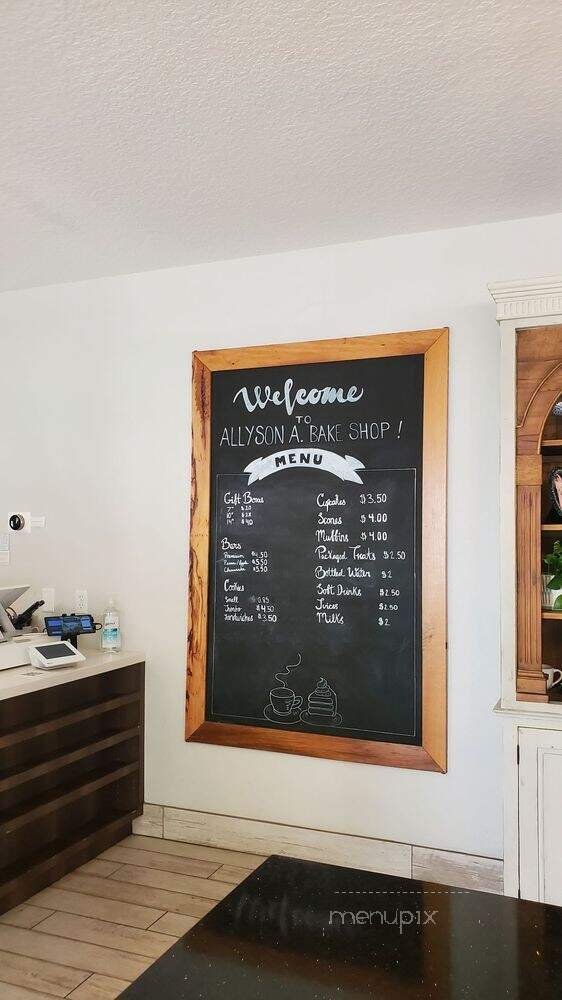 Welcome
TO
ALLYSON A. BAKE SHOP !
MENU
Gift Boxes
7" $20
10" $28
14" $40
Bars
Premium $4.50
$5.50
Cheesecake $5.50
Cookies
Small 0.95
Jumbo $4.50
Sandwiches $3.50
Cupcakes $3.50
Scones $4.00
Muffins $4.00
Packaged Treats $2.50
Bottled Water $2
Soft Drinks $2.50
Juices $2.50
Milks $2
menupix